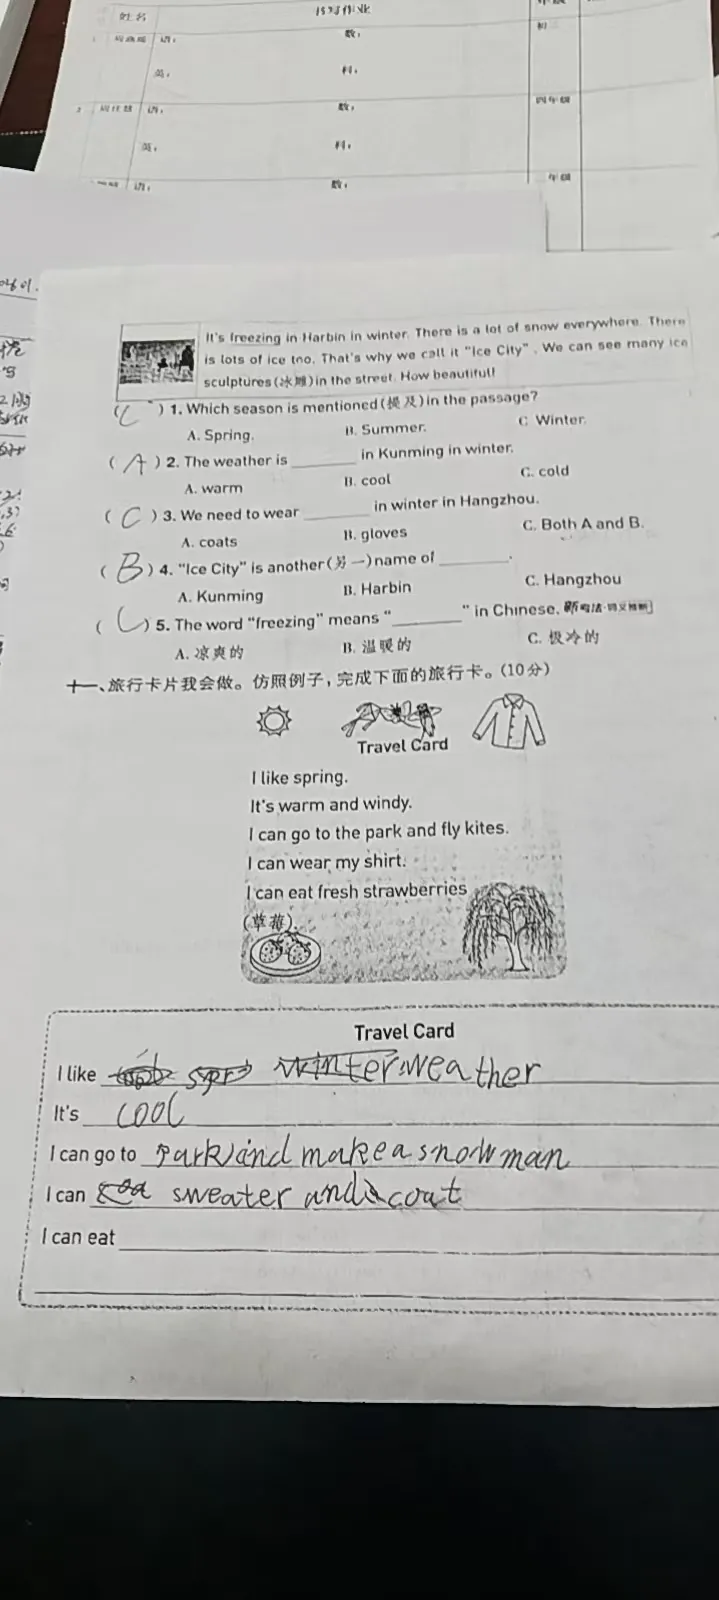 姓名
书写作业
语：
数：
初
英：
科：
2
语：
数：
四年级
英：
科：
语：
数：
年级
It's freezing in Harbin in winter. There is a lot of snow everywhere. There
is lots of ice too. That's why we call it "Ice City". We can see many ice
sculptures(冰雕)in the street. How beautiful!
(C) 1. Which season is mentioned(提及)in the passage?
A. Spring. B. Summer. C. Winter.
(A) 2. The weather is ________ in Kunming in winter.
A. warm B. cool C. cold
(C) 3. We need to wear ________ in winter in Hangzhou.
A. coats B. gloves C. Both A and B.
(B) 4. "Ice City" is another(另一)name of ________.
A. Kunming B. Harbin C. Hangzhou
(C) 5. The word "freezing" means "________" in Chinese.
A. 凉爽的 B. 温暖的 C. 极冷的
十一、旅行卡片我会做。仿照例子，完成下面的旅行卡。(10分)
Travel Card
I like spring.
It's warm and windy.
I can go to the park and fly kites.
I can wear my shirt.
I can eat fresh strawberries
(草莓).
Travel Card
I like winter weather
It's cool
I can go to park and make a snowman
I can sweater and a coat
I can eat